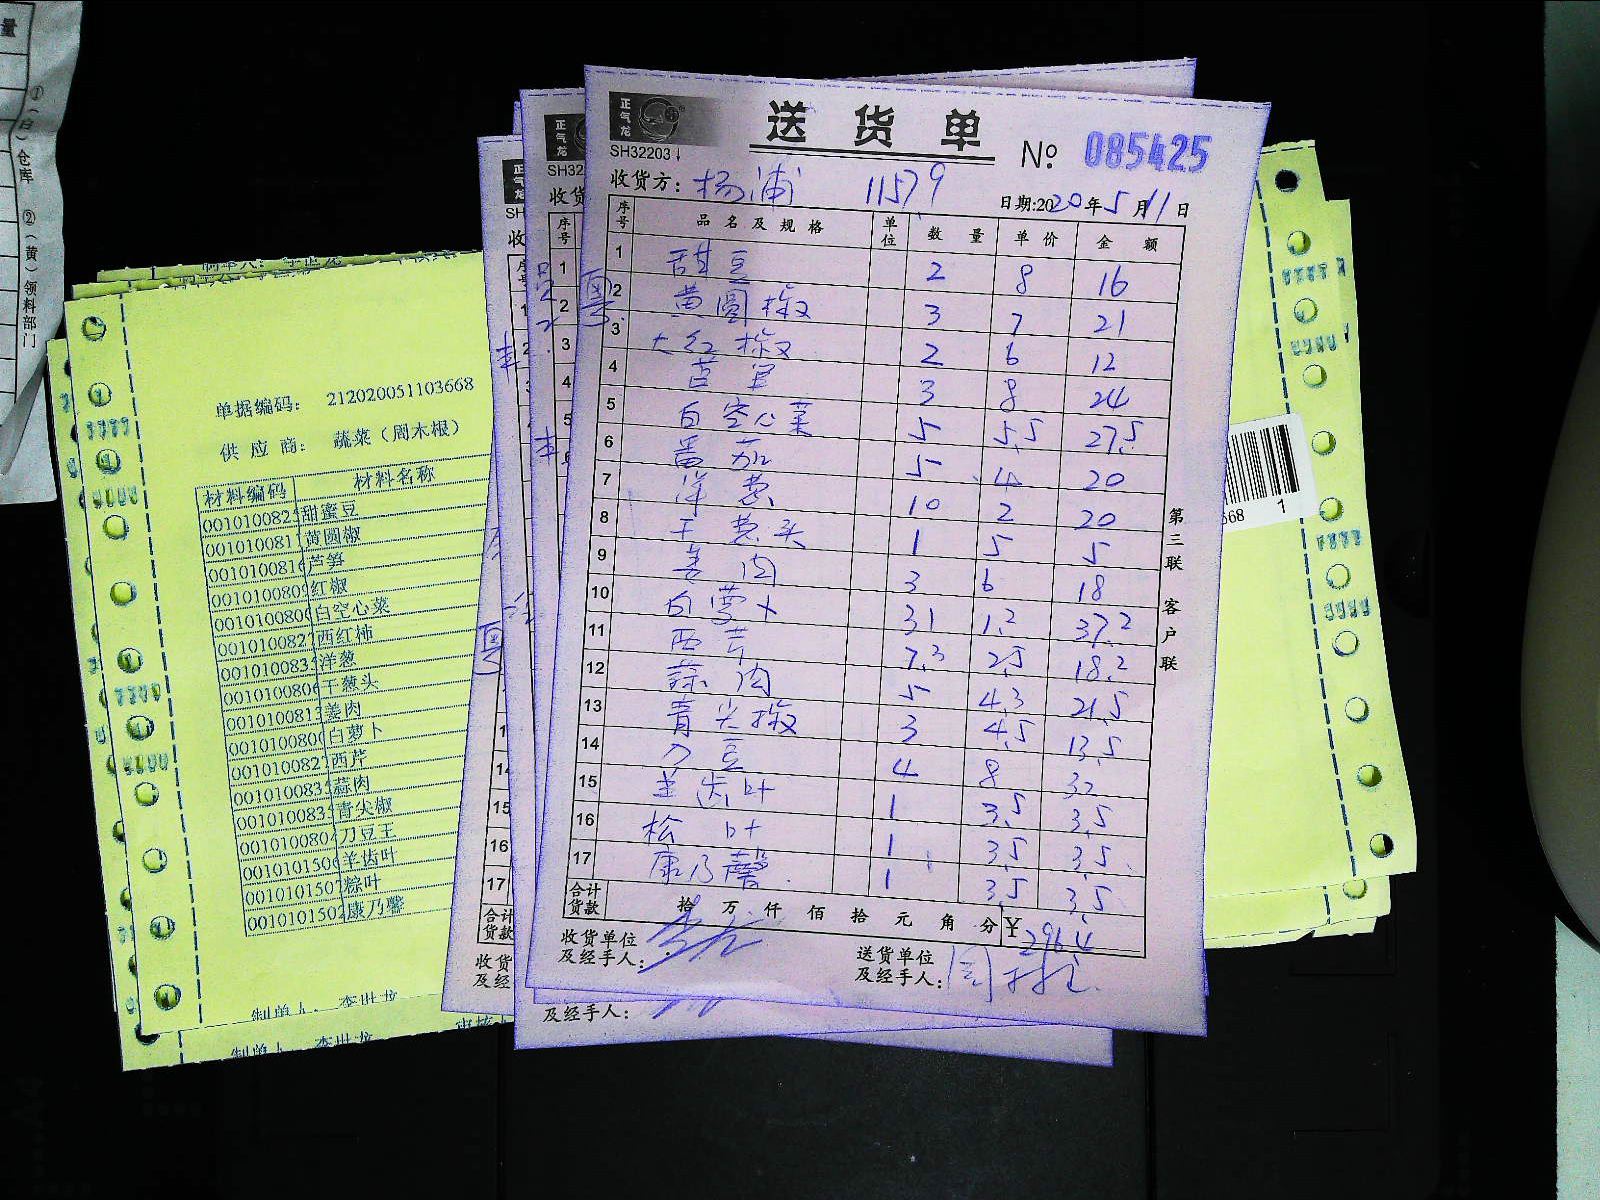 量
①（白）仓库 ②（黄）领料部门
单据编码： 212020051103668
供 应 商： 蔬菜（周木根）
材料编码 材料名称
0010100824 甜蜜豆
0010100811 黄圆椒
0010100816 芦笋
0010100809 红椒
001010080 白空心菜
001010082 西红柿
001010083 洋葱
001010080 干葱头
001010081 姜肉
001010080 白萝卜
001010082 西芹
001010083 蒜肉
001010083 青尖椒
001010080 刀豆王
001010150 羊齿叶
001010150 粽叶
001010150 康乃馨
制单人： 李世龙
制单人： 李世龙
正气龙
SH32203
送 货 单
№ 085425
收货方： 杨浦 11579
日期:2020年5月11日
序号 品名及规格 单位 数量 单价 金额
1 甜豆 2 8 16
2 黄圆椒 3 7 21
3 大红椒 2 6 12
4 芦笋 3 8 24
5 白空心菜 5 5.5 27.5
6 番茄 5 4 20
7 洋葱 10 2 20
8 干葱头 1 5 5
9 姜肉 3 6 18
10 白萝卜 31 1.2 37.2
11 西芹 7.3 2.5 18.2
12 蒜肉 5 4.3 21.5
13 青尖椒 3 4.5 13.5
14 刀豆 4 8 32
15 羊齿叶 1 3.5 3.5
16 松叶 1 3.5 3.5
17 康乃馨 1 3.5 3.5
合计货款 拾 万 仟 佰 拾 元 角 分 ¥296.4
收货单位及经手人：
送货单位及经手人：
第三联 客户联
及经手人：
668 1